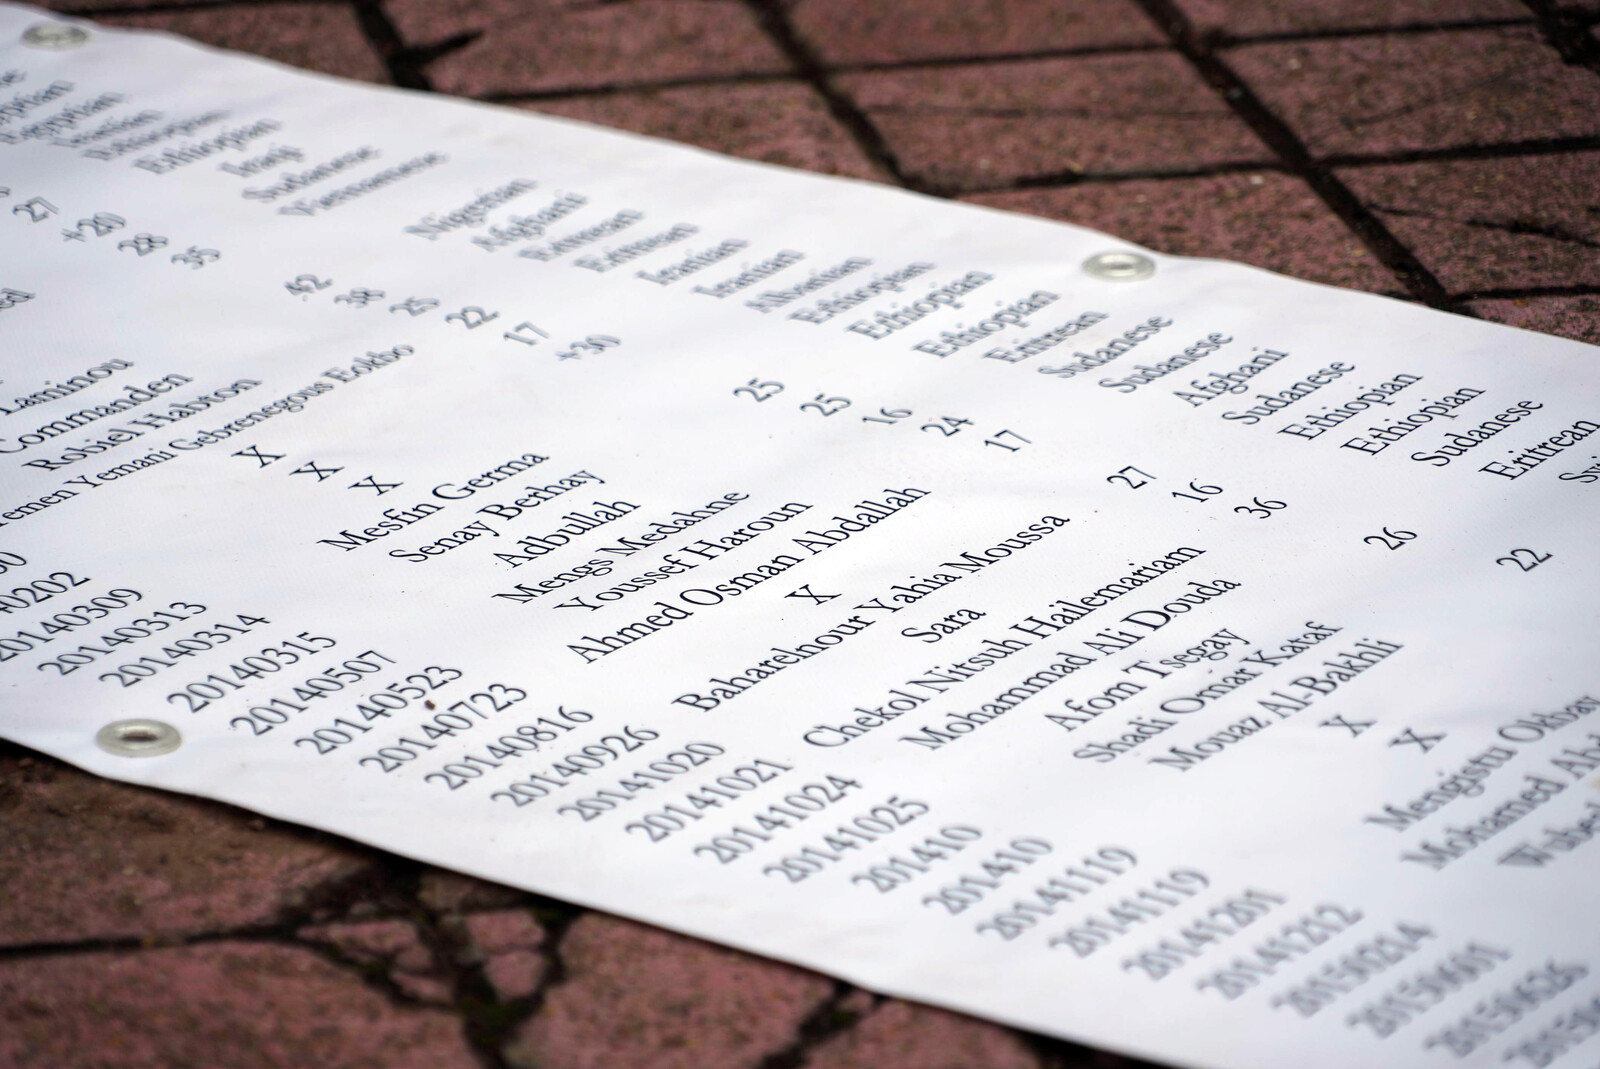 27 Ethiopian
+20 Iraqi
28 Sudanese
35 Vietnamese
Laminou 42 Nigerian
Commanden 38 Afghani
Robiel Habton 25 Eritrean
Yemani Gebrenegous Eokbo 22 Eritrean
X 17 Iranian
X +30 Iranian
20140309 X Albanian
20140313 Mesfin Germa Ethiopian
20140314 Senay Berhay 25 Ethiopian
20140315 Adbullah 25 Ethiopian
20140507 Mengs Medahne 16 Eritrean
20140523 Youssef Haroun 24 Sudanese
20140723 Ahmed Osman Abdallah 17 Sudanese
20140816 X Afghani
20140926 Baharelnour Yahia Moussa 27 Sudanese
20141020 Sara 16 Ethiopian
20141021 Chekol Nitsuh Hailemariam 36 Ethiopian
20141024 Mohammad Ali Douda Sudanese
20141025 Afom Tsegay 26 Eritrean
201410 Shadi Omar Kataf
201410 Mouaz Al-Bakhli 22
20141119 X
20141119 X
20141201 Mengistu Okbay
20141212 Mohamed
20150214
20150601
20150626